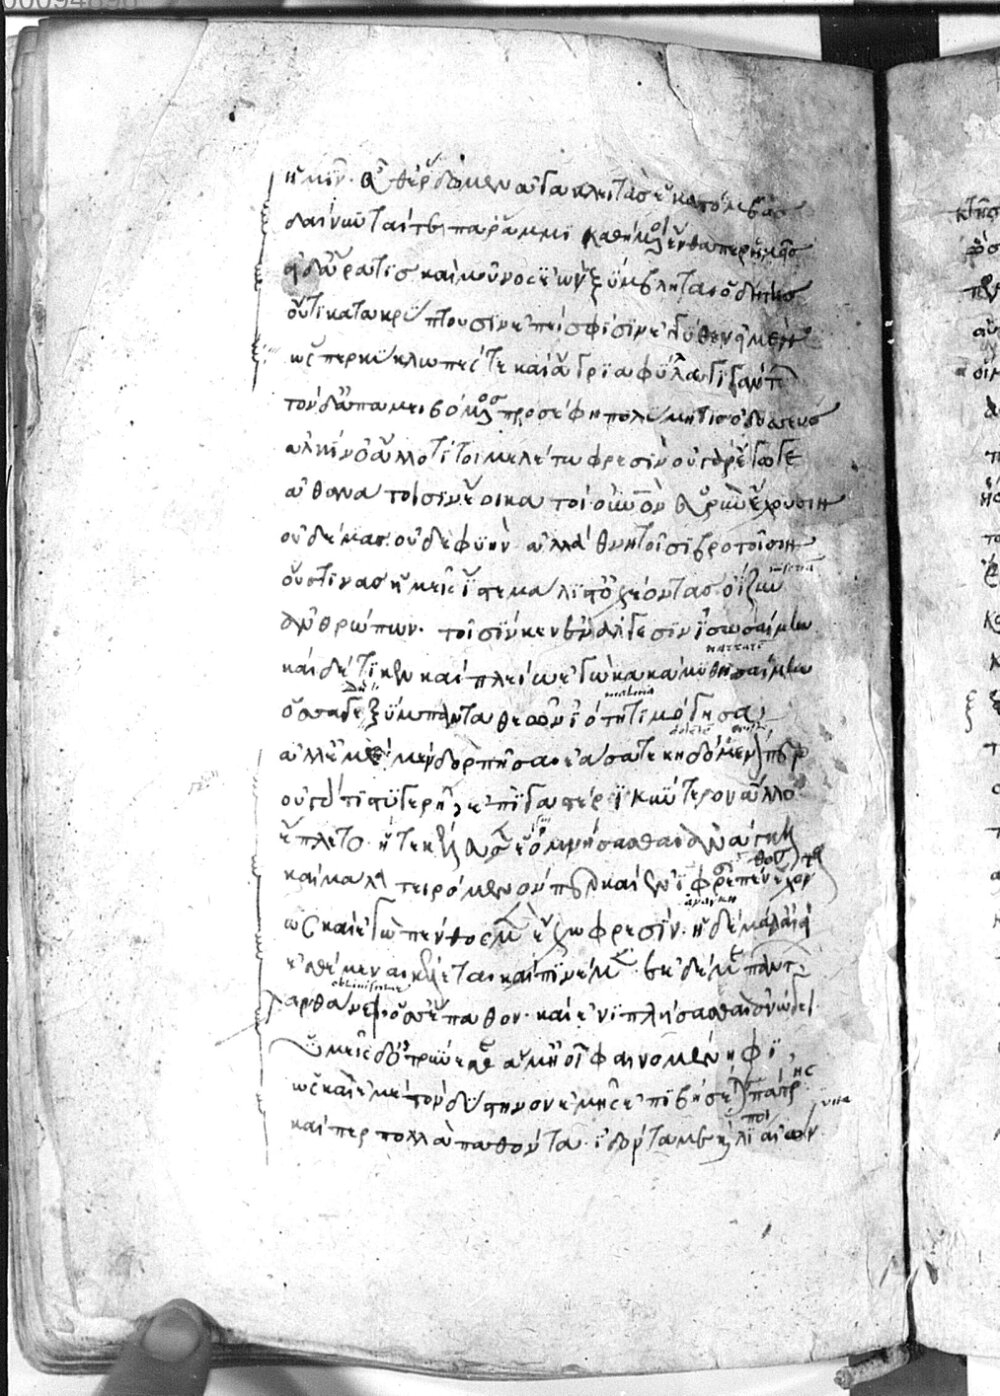 ἡμῖν· εὖθ' ἔρδωμεν ἀγακλειτὰς ἑκατόμβας
δαίνυνταί τε παρ' ἄμμι καθήμενοι ἔνθα περ ἡμεῖς
εἰ δ' ἄρα τις καὶ μοῦνος ἰὼν ξύμβληται ὁδίτης
οὔτι κατακρύπτουσιν ἐπεί σφισιν ἐγγύθεν εἰμέν
ὥς περ κύκλωπές τε καὶ ἄγρια φῦλα γιγάντων
τὸν δ' ἀπαμειβόμενος προσέφη πολύμητις ὀδυσσεύς
ἀλκίνο' ἄλλο τί τοι μελέτω φρεσίν οὐ γὰρ ἔγωγε
ἀθανάτοισιν ἔοικα τοὶ οὐρανὸν εὐρὺν ἔχουσιν
οὐ δέμας οὐδὲ φυὴν ἀλλὰ θνητοῖσι βροτοῖσιν
οὕστινας ὑμεῖς ἴστε μάλιστ' ὀχέοντας ὀϊζὺν
ἀνθρώπων· τοῖσίν κεν ἐν ἄλγεσιν ἰσωσαίμην
καὶ δ' ἔτι κεν καὶ πλείω ἐγὼ κακὰ μυθησαίμην
ὅσσα γε δὴ ξύμπαντα θεῶν ἰότητι μόγησα
ἀλλ' ἐμὲ μὲν δορπῆσαι ἐάσατε κηδόμενόν περ
οὐ γάρ τι στυγερῇ ἐπὶ γαστέρι κύντερον ἄλλο
ἔπλετο· ἥ τ' ἐκέλευσεν ἕο μνήσασθαι ἀνάγκῃ
καὶ μάλα τειρόμενόν περ καὶ ἐνὶ φρεσὶ πένθος ἔχοντα
ὡς καὶ ἐγὼ πένθος μὲν ἔχω φρεσίν· ἡ δὲ μάλ' αἰεὶ
ἐσθέμεναι κέλεται καὶ πινέμεν· ἐκ δέ με πάντων
ληθάνει ὅσσ' ἔπαθον· καὶ ἐνιπλήσασθαι ἀνώγει
ὑμεῖς δ' ὀτρύνεσθε ἅμ' ἠοῖ φαινομένηφι
ὥς καὶ ἐμὲ τὸν δύστηνον ἐμῆς ἐπιβήσετε πάτρης
καί περ πολλὰ παθόντα· ἰδόντα με καὶ λίποι αἰών·